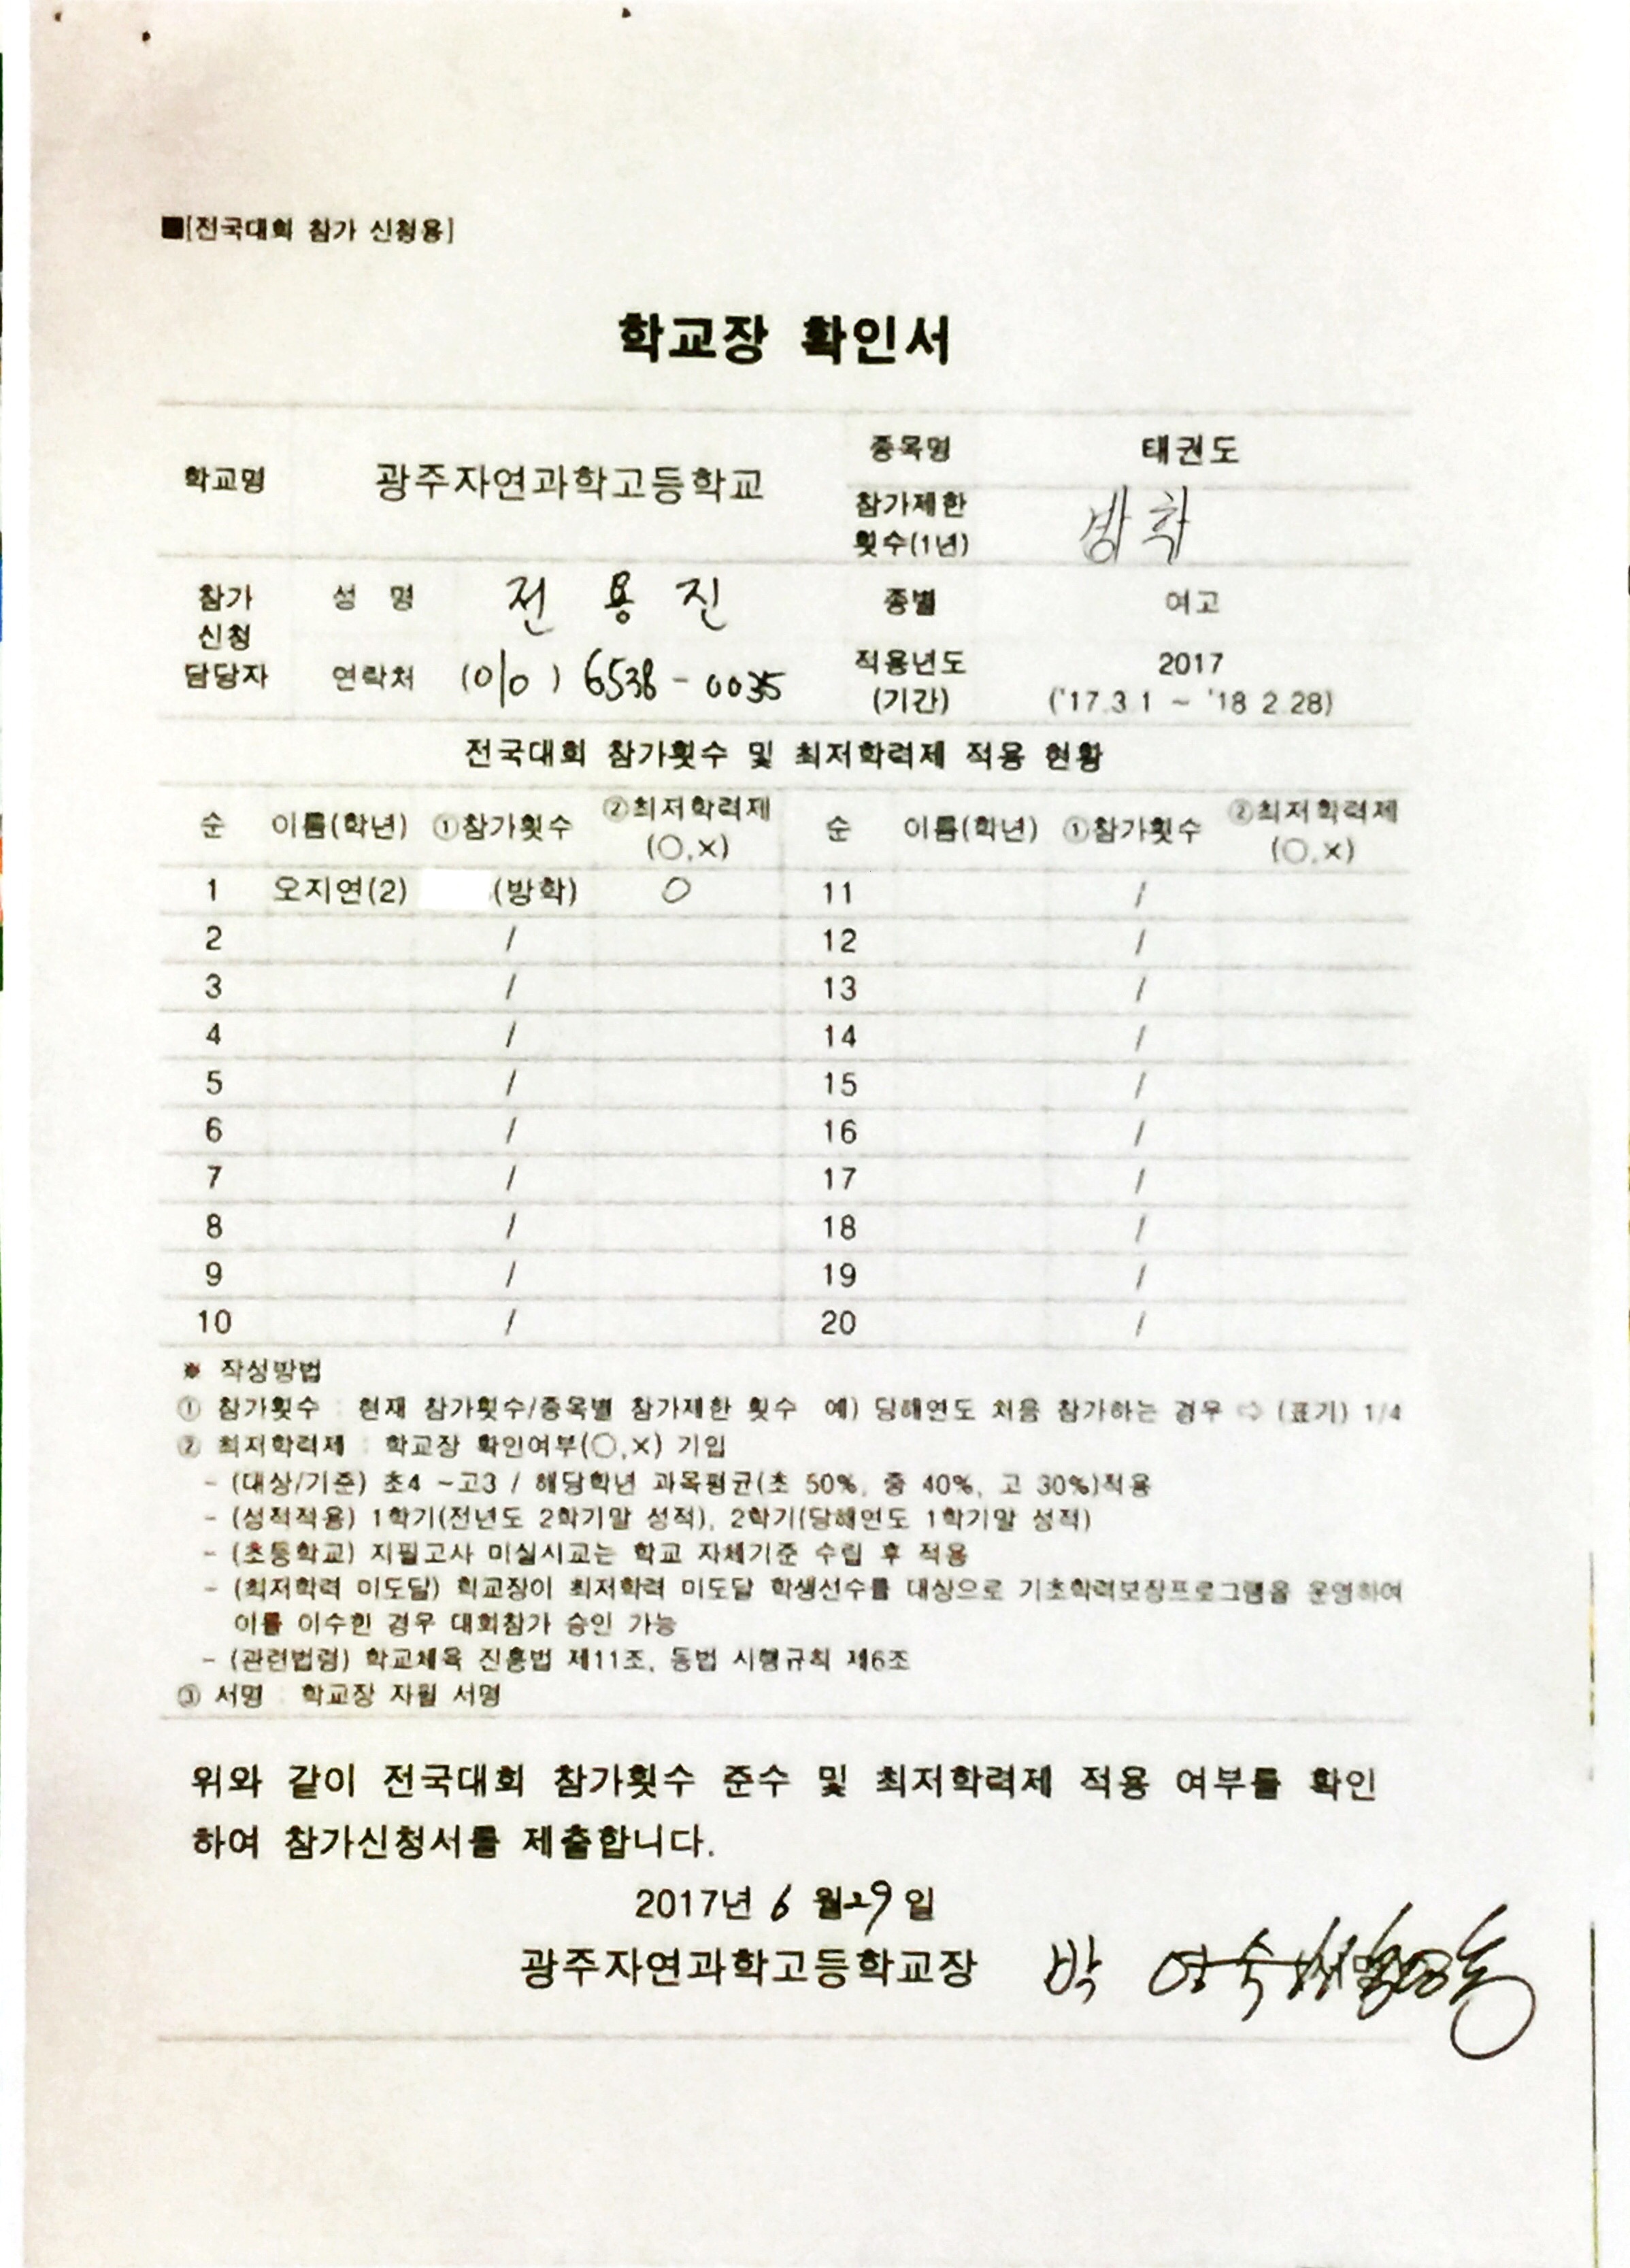 ■[전국대회 참가 신청용]
학교장 확인서
학교명 광주자연과학고등학교 종목명 태권도
참가제한 횟수(1년) 방학
참가 신청 담당자 성 명 전 용 진 종별 여고
연락처 (010) 6538-0035 적용년도 (기간) 2017 ('17.3 1 ~ '18 2.28)
전국대회 참가횟수 및 최저학력제 적용 현황
순 이름(학년) ①참가횟수 ②최저학력제 (○,×) 순 이름(학년) ①참가횟수 ②최저학력제 (○,×)
1 오지연(2) (방학) ○ 11 /
2 / 12 /
3 / 13 /
4 / 14 /
5 / 15 /
6 / 16 /
7 / 17 /
8 / 18 /
9 / 19 /
10 / 20 /
※ 작성방법
① 참가횟수 : 현재 참가횟수/종목별 참가제한 횟수 예) 당해연도 처음 참가하는 경우 ⇨ (표기) 1/4
② 최저학력제 : 학교장 확인여부(○,×) 기입
- (대상/기준) 초4 ~고3 / 해당학년 과목평균(초 50%, 중 40%, 고 30%)적용
- (성적적용) 1학기(전년도 2학기말 성적), 2학기(당해연도 1학기말 성적)
- (초등학교) 지필고사 미실시교는 학교 자체기준 수립 후 적용
- (최저학력 미도달) 학교장이 최저학력 미도달 학생선수를 대상으로 기초학력보장프로그램을 운영하여
이를 이수한 경우 대회참가 승인 가능
- (관련법령) 학교체육 진흥법 제11조, 동법 시행규칙 제6조
③ 서명 : 학교장 자필 서명
위와 같이 전국대회 참가횟수 준수 및 최저학력제 적용 여부를 확인
하여 참가신청서를 제출합니다.
2017년 6 월 29 일
광주자연과학고등학교장 박 영숙